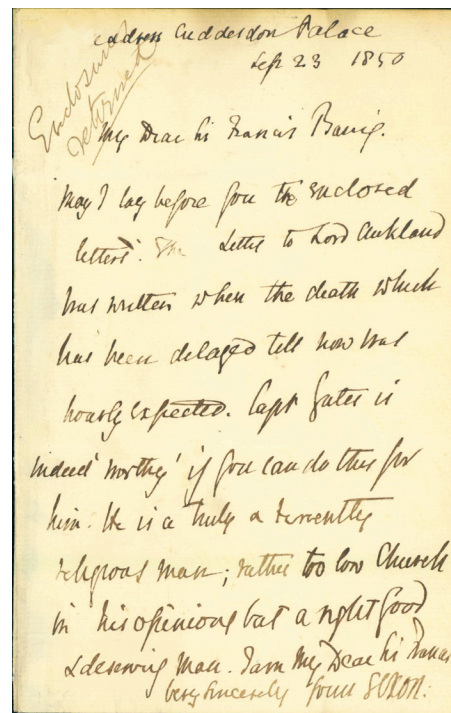 address Cuddesdon Palace
Sept 23 1850
Enclosure
returned
My Dear Sir Francis Baring.
May I lay before you the enclosed
letters. The Letter to Lord Auckland
was written when the death which
has been delayed till now was
hourly expected. Capt Gates is
indeed 'worthy' if you can do this for
him. He is a truly & fervently
religious man; rather too low Church
in his opinions but a right good
& deserving man. I am My Dear Sir Francis
very sincerely yours S. OXON.